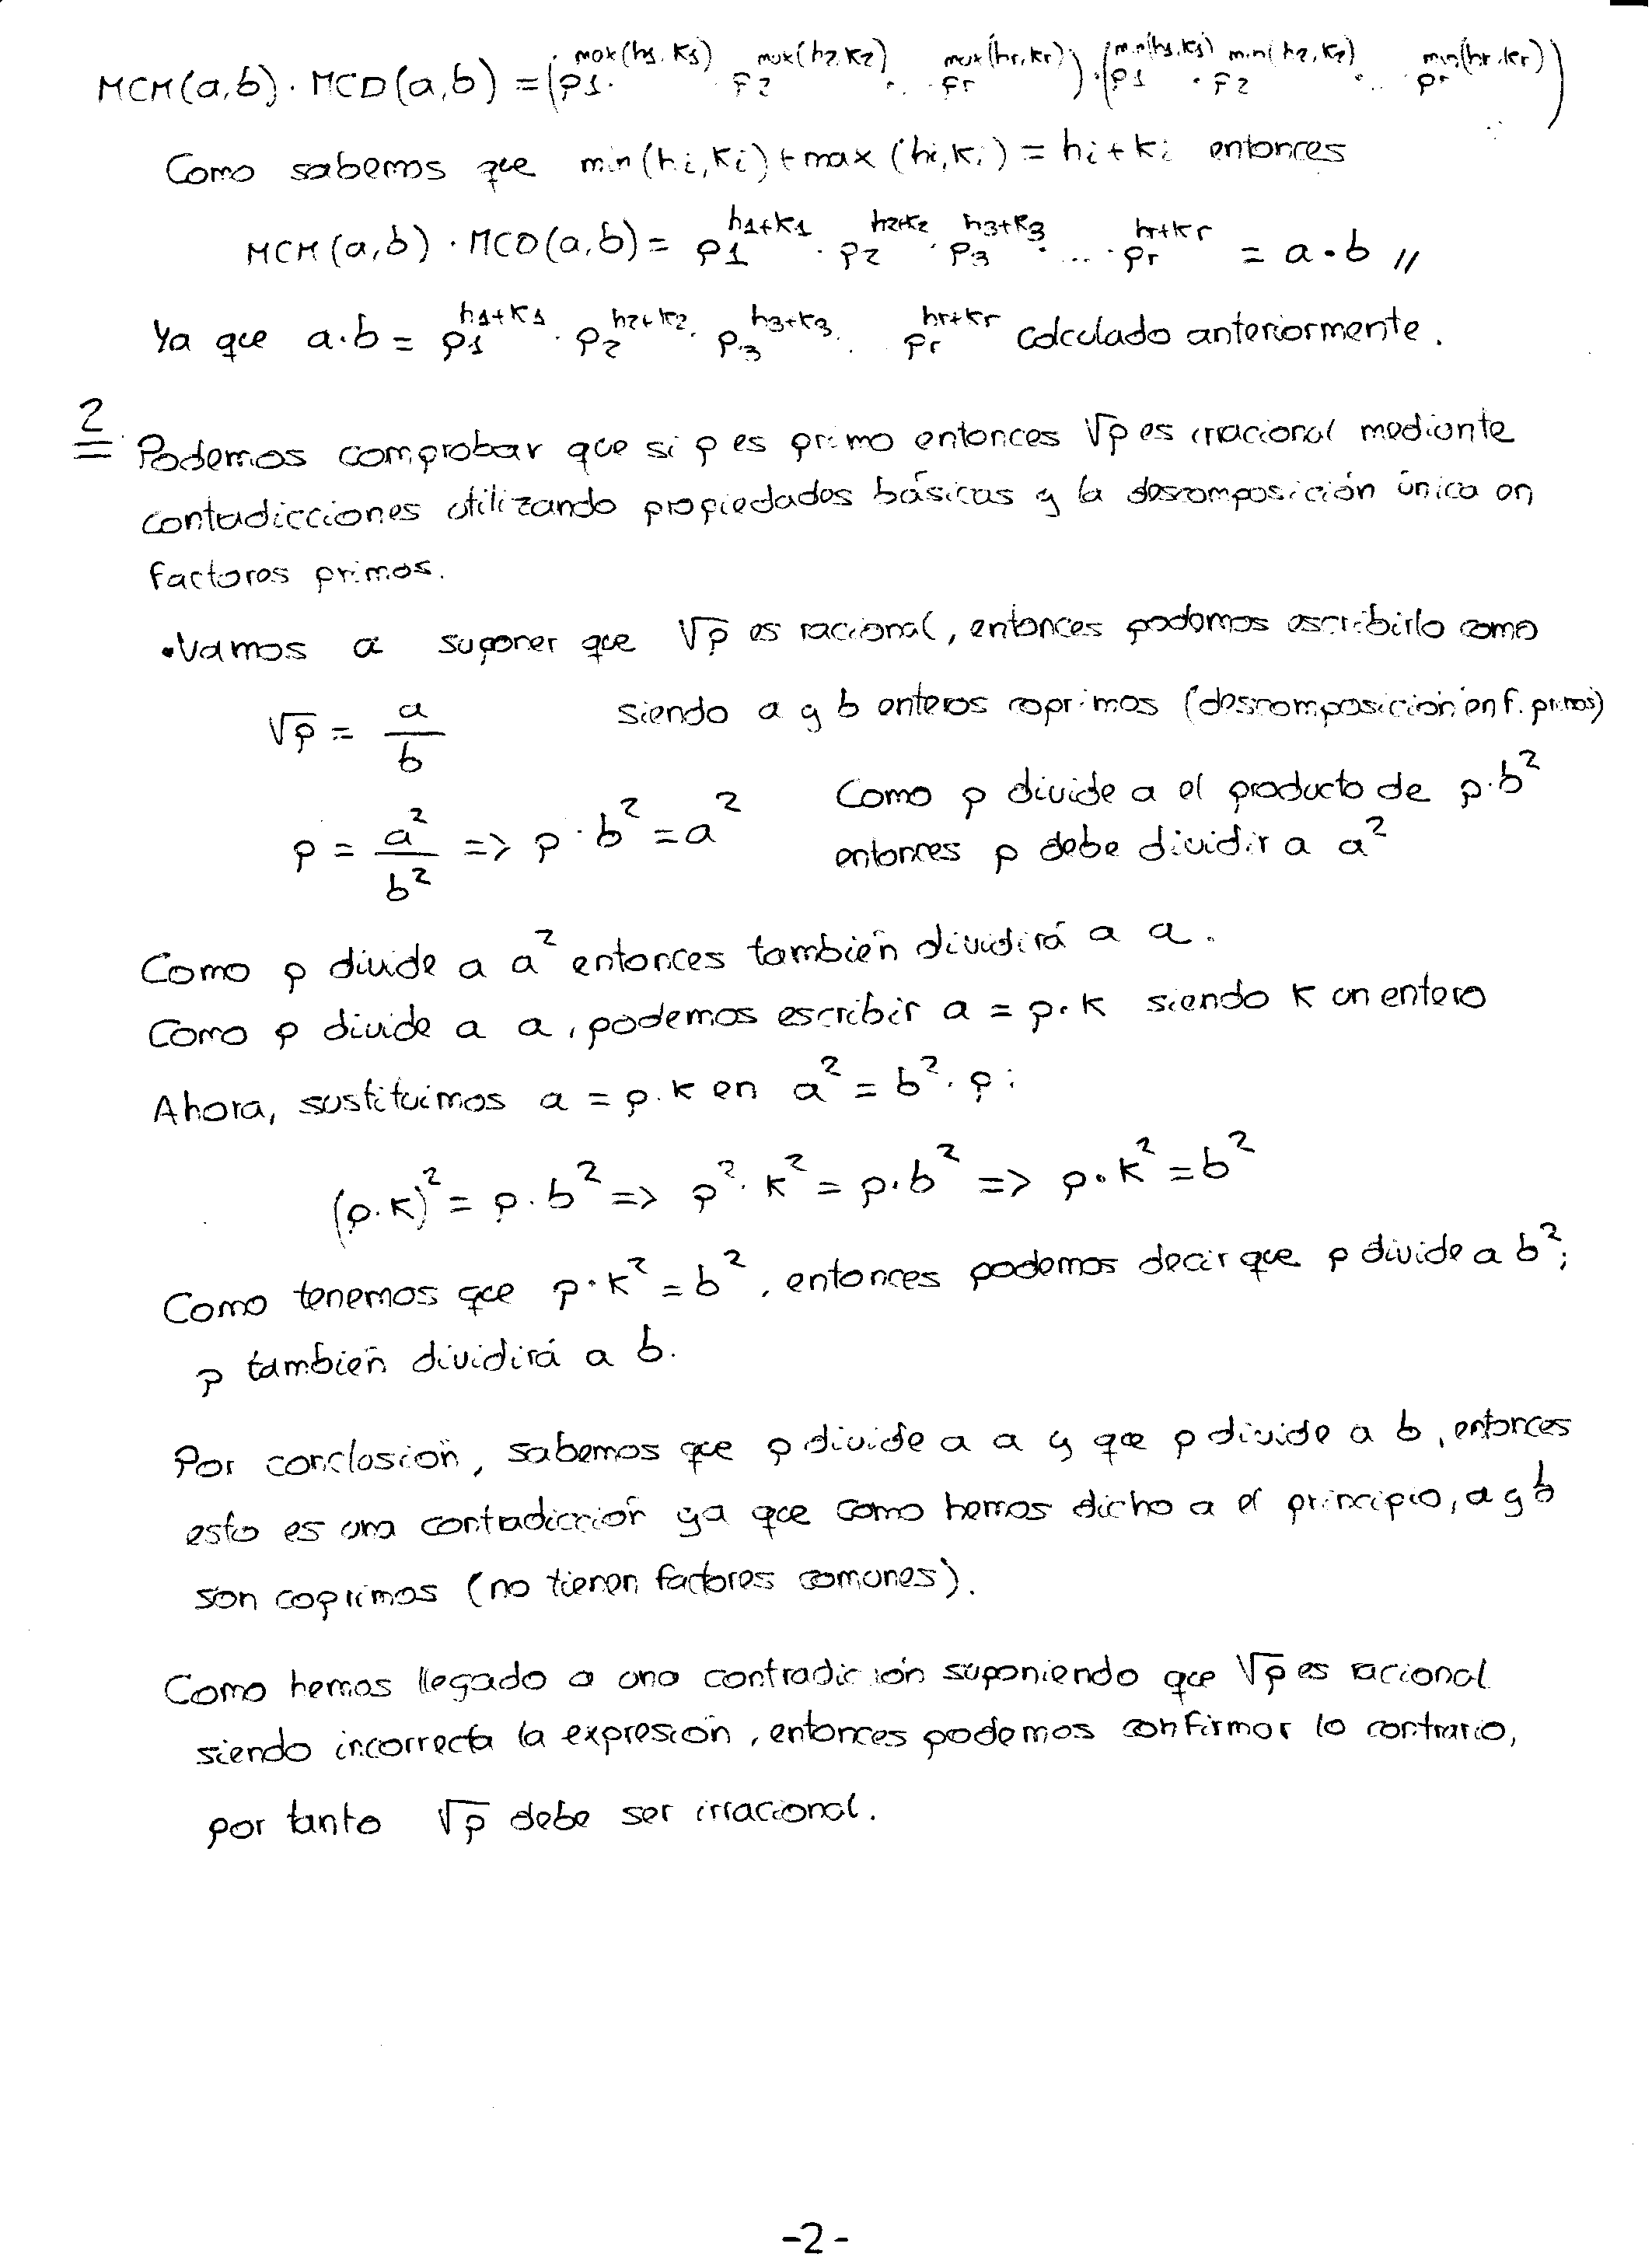 MCM(a,b) · MCD(a,b) = (p1^max(h1,k1) · p2^max(h2,k2) · ... · pr^max(hr,kr)) · (p1^min(h1,k1) · p2^min(h2,k2) · ... pr^min(hr,kr))
Como sabemos que min(hi,ki) + max(hi,ki) = hi + ki entonces
MCM(a,b) · MCD(a,b) = p1^h1+k1 · p2^h2+k2 · p3^h3+k3 · ... · pr^hr+kr = a · b //
Ya que a·b = p1^h1+k1 · p2^h2+k2 · p3^h3+k3 · . pr^hr+kr calculado anteriormente.
2 Podemos comprobar que si p es primo entonces √p es irracional mediante
contradicciones utilizando propiedades básicas y la descomposición única en
factores primos.
•Vamos a suponer que √p es racional, entonces podemos escribirlo como
√p = a/b siendo a y b enteros coprimos (descomposición en f. primos)
p = a²/b² => p · b² = a² Como p divide a el producto de p·b²
entonces p debe dividir a a²
Como p divide a a² entonces también dividirá a a.
Como p divide a a, podemos escribir a = p·k siendo k un entero
Ahora, sustituimos a = p·k en a² = b²·p:
(p·k)² = p·b² => p²·k² = p·b² => p·k² = b²
Como tenemos que p·k² = b², entonces podemos decir que p divide a b²;
p también dividirá a b.
Por conclusión, sabemos que p divide a a y que p divide a b, entonces
esto es una contradicción ya que como hemos dicho a el principio, a y b
son coprimos (no tienen factores comunes).
Como hemos llegado a una contradicción suponiendo que √p es racional
siendo incorrecta la expresión, entonces podemos confirmar lo contrario,
por tanto √p debe ser irracional.
-2-